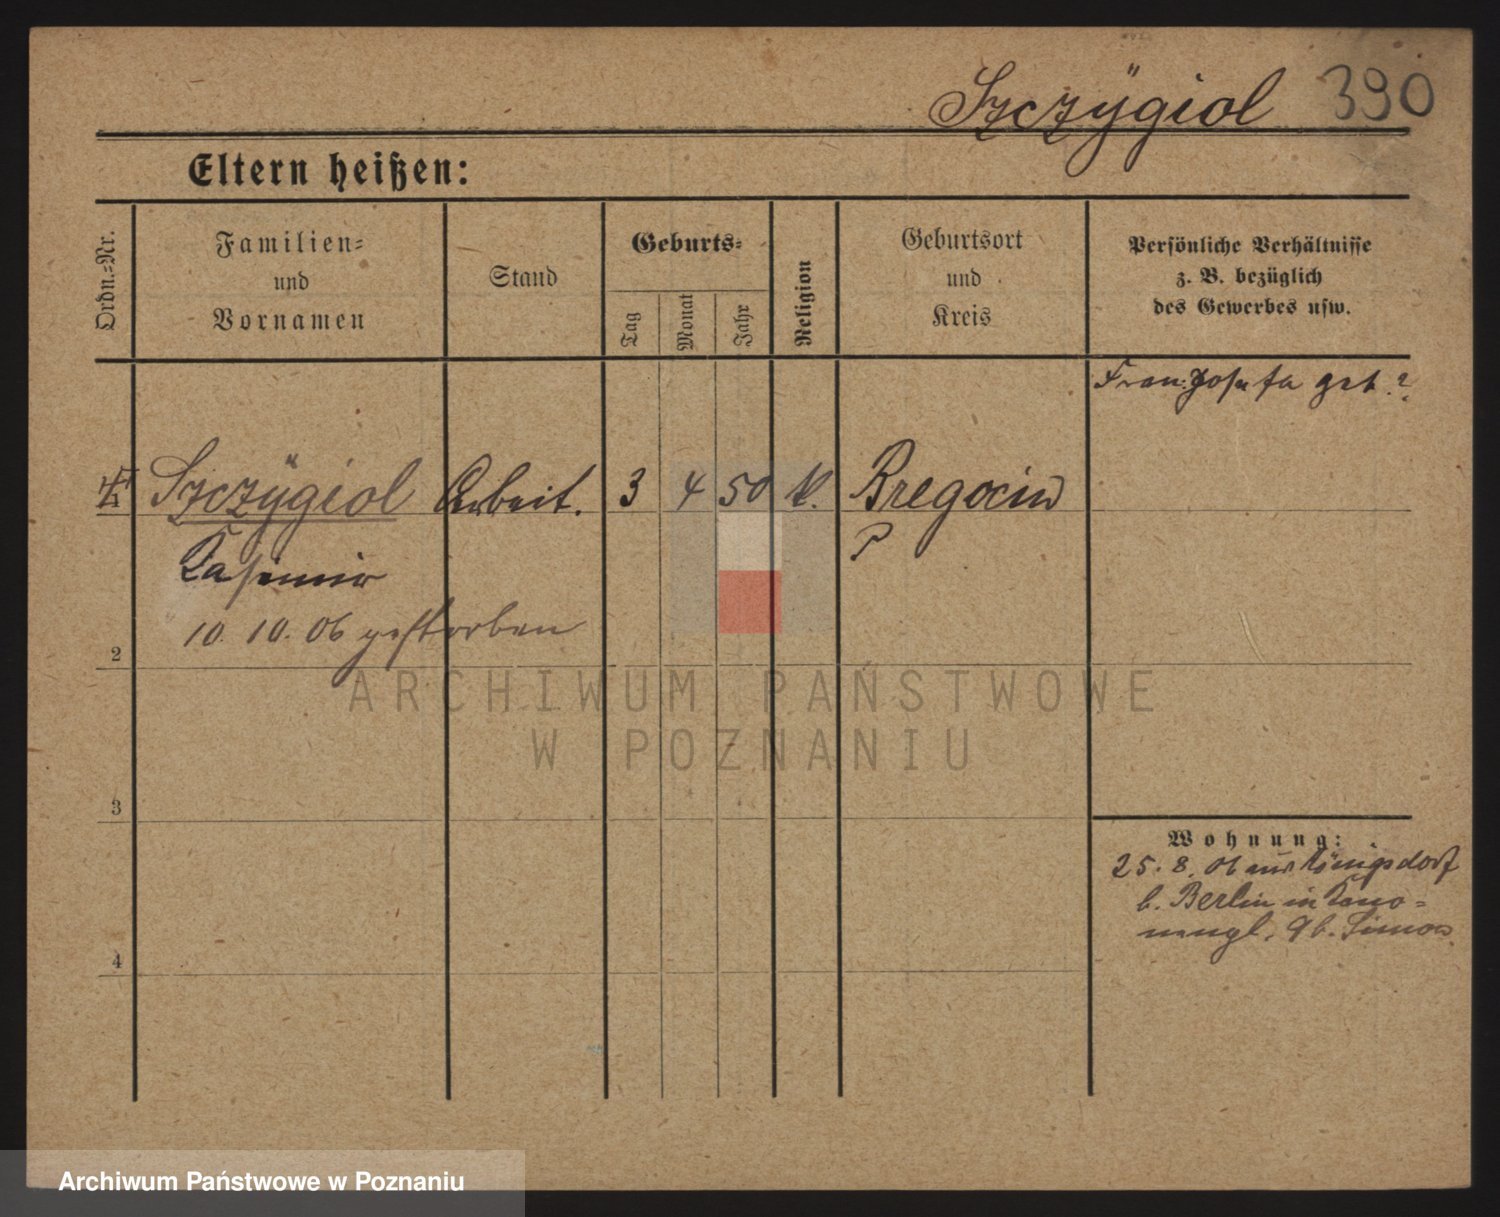 Szczÿgiol 390
Eltern heißen:
Ordn.-Nr.
Familien-
und
Vornamen
Stand
Geburts-
Tag
Monat
Jahr
Religion
Geburtsort
und
Kreis
Persönliche Verhältnisse
z. B. bezüglich
des Gewerbes usw.
Frau: Josefa geb.?
Szczÿgiol Arbeit. 3 4 50 k. Bregocin
P
Kasimir
10. 10. 06 gestorben
2
3
4
Wohnung:
25. 8. 06 aus Königsdorf
b. Berlin in
9 b. Simon
ARCHIWUM PAŃSTWOWE
W POZNANIU
Archiwum Państwowe w Poznaniu